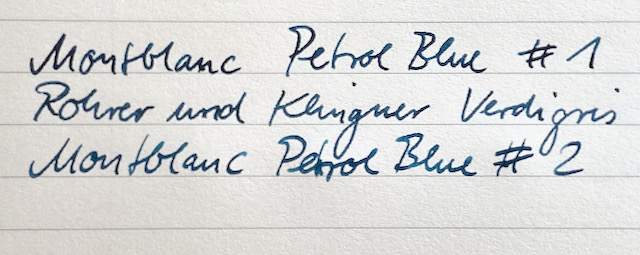 Montblanc Petrol Blue #1
Rohrer und Klingner Verdigris
Montblanc Petrol Blue #2